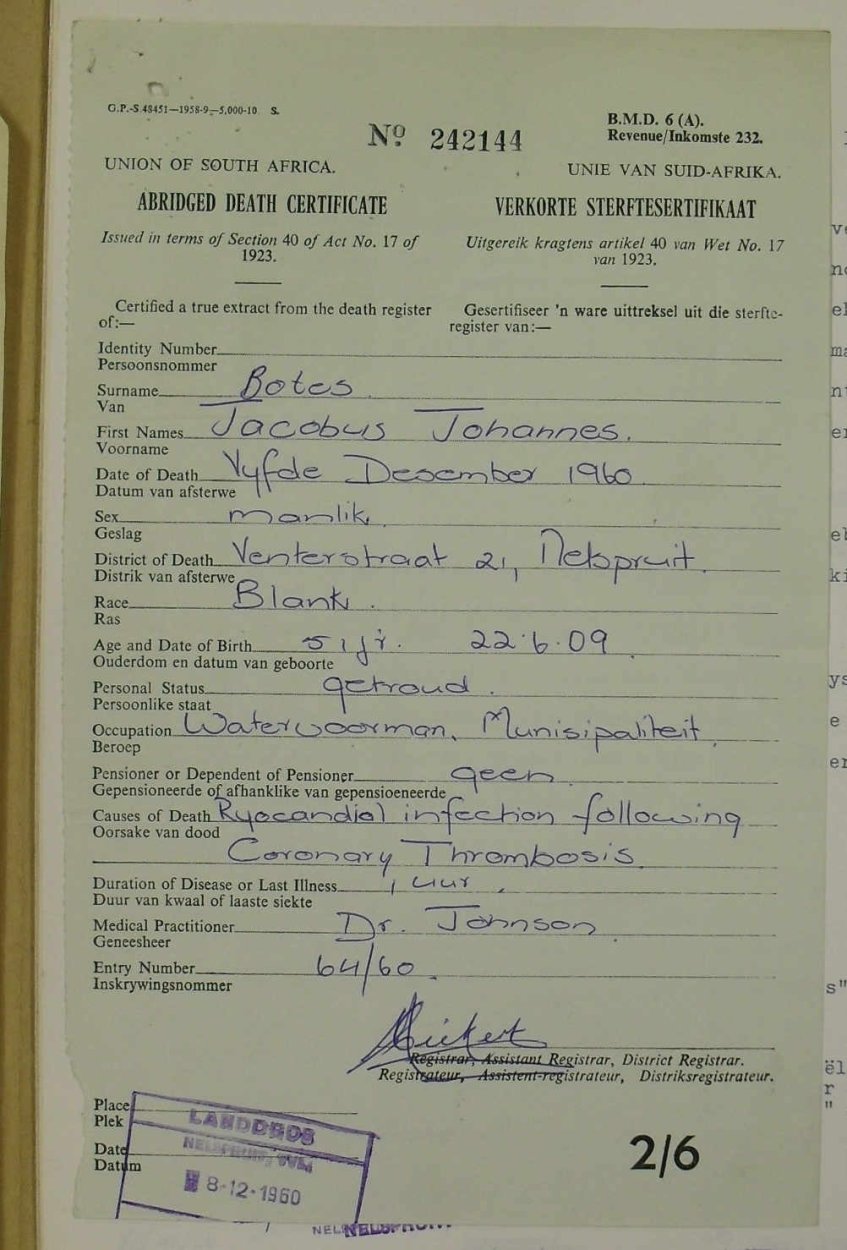 G.P.-S.48451—1958-9.—5,000-10 S.
B.M.D. 6 (A).
Nº 242144
Revenue/Inkomste 232.
UNION OF SOUTH AFRICA.
UNIE VAN SUID-AFRIKA.
ABRIDGED DEATH CERTIFICATE
VERKORTE STERFTESERTIFIKAAT
Issued in terms of Section 40 of Act No. 17 of
1923.
Uitgereik kragtens artikel 40 van Wet No. 17
van 1923.
Certified a true extract from the death register
of:—
Gesertifiseer 'n ware uittreksel uit die sterfte-
register van:—
Identity Number
Persoonsnommer
Surname Botes
Van
First Names Jacobus Johannes.
Voorname
Date of Death Vyfde Desember 1960
Datum van afsterwe
Sex manlik
Geslag
District of Death Venterstraat 21, Nelspruit.
Distrik van afsterwe
Race Blank.
Ras
Age and Date of Birth 51 jr. 22.6.09
Ouderdom en datum van geboorte
Personal Status getroud.
Persoonlike staat
Occupation Watervoorman, Munisipaliteit.
Beroep
Pensioner or Dependent of Pensioner geen.
Gepensioneerde of afhanklike van gepensioeneerde
Causes of Death Ryocandial infection following
Oorsake van dood
Coronary Thrombosis
Duration of Disease or Last Illness 1 uur.
Duur van kwaal of laaste siekte
Medical Practitioner Dr. Johnson
Geneesheer
Entry Number 64/60.
Inskrywingsnommer
Registrar, Assistant Registrar, District Registrar.
Registrateur, Assistent-registrateur, Distriksregistrateur.
Place
Plek
LANDDROS
NELSPRUIT, TVL.
Date
Datum
8-12-1960
2/6